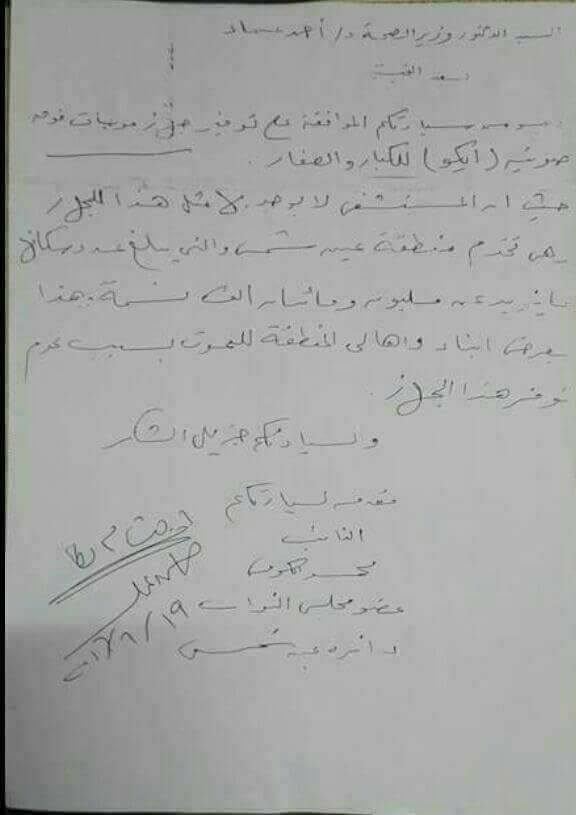 السيد الدكتور وزير الصحة د/ أحمد عماد
بعد التحية
سيادتكم الموافقة على توفير جهاز موجات فوق
صوتيه (أيكو) للكبار والصغار .
حيث ان المستشفى لا يوجد بها مثل هذا الجهاز
وهى تخدم منطقة عين شمس والتى يبلغ عدد سكانها
ما يزيد عن مليون ومائتان الف نسمة. وهذا
يعرض ابناء واهالى المنطقة للموت بسبب عدم
توفر هذا الجهاز .
ولسيادتكم جزيل الشكر
مقدمه لسيادتكم
النائب
محمد
عضو مجلس النواب
دائره عين شمس